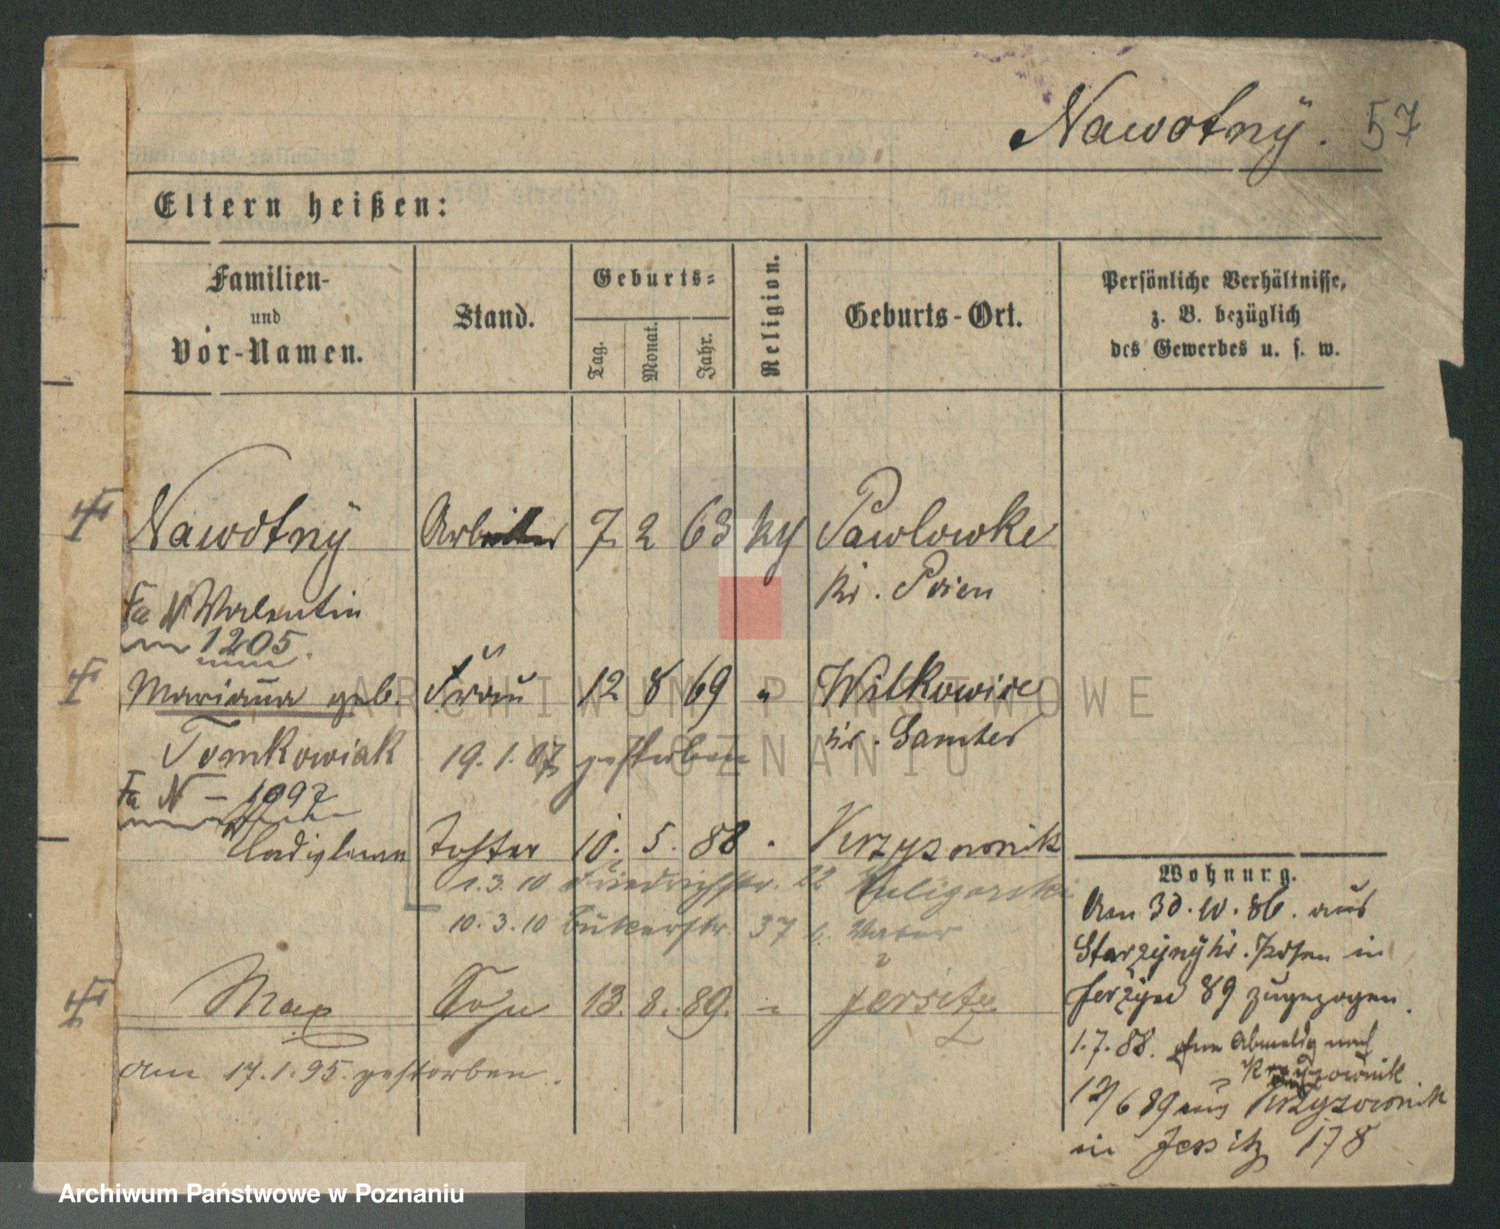 Nawotnÿ. 57
Eltern heißen:
Familien-
und
Vor-Namen.
Stand.
Geburts-
Tag.
Monat.
Jahr.
Religion.
Geburts-Ort.
Persönliche Verhältnisse,
z. B. bezüglich
des Gewerbes u. s. w.
Nawotnÿ Arbeiter 7. 2 63 Pawlowke
Valentin Kr. Posen
1205.
Mariana geb. Frau 12 8 69 " Witkowice
Tomkowiak 19. 1. 07 gestorben Kr. Samter
Fa N – 1092
Tochter 10. 5. 88 Krzyzownik
1.3.10 Friedrichstr. 22
10.3.10 Bukerstr. 37
Max Sohn 13. 8. 89. " Jersitz
am 17.1.95. gestorben.
Wohnung.
Am 30.10.86. aus
Starzyny Kr. Posen in
Jerzyce 89 zugezogen.
1.7.88. ohne Abmeldg nach
Krzyzownik
12/6 89 aus Krzyzownik
in Jersitz 178
ARCHIWUM PAŃSTWOWE
W POZNANIU
Archiwum Państwowe w Poznaniu